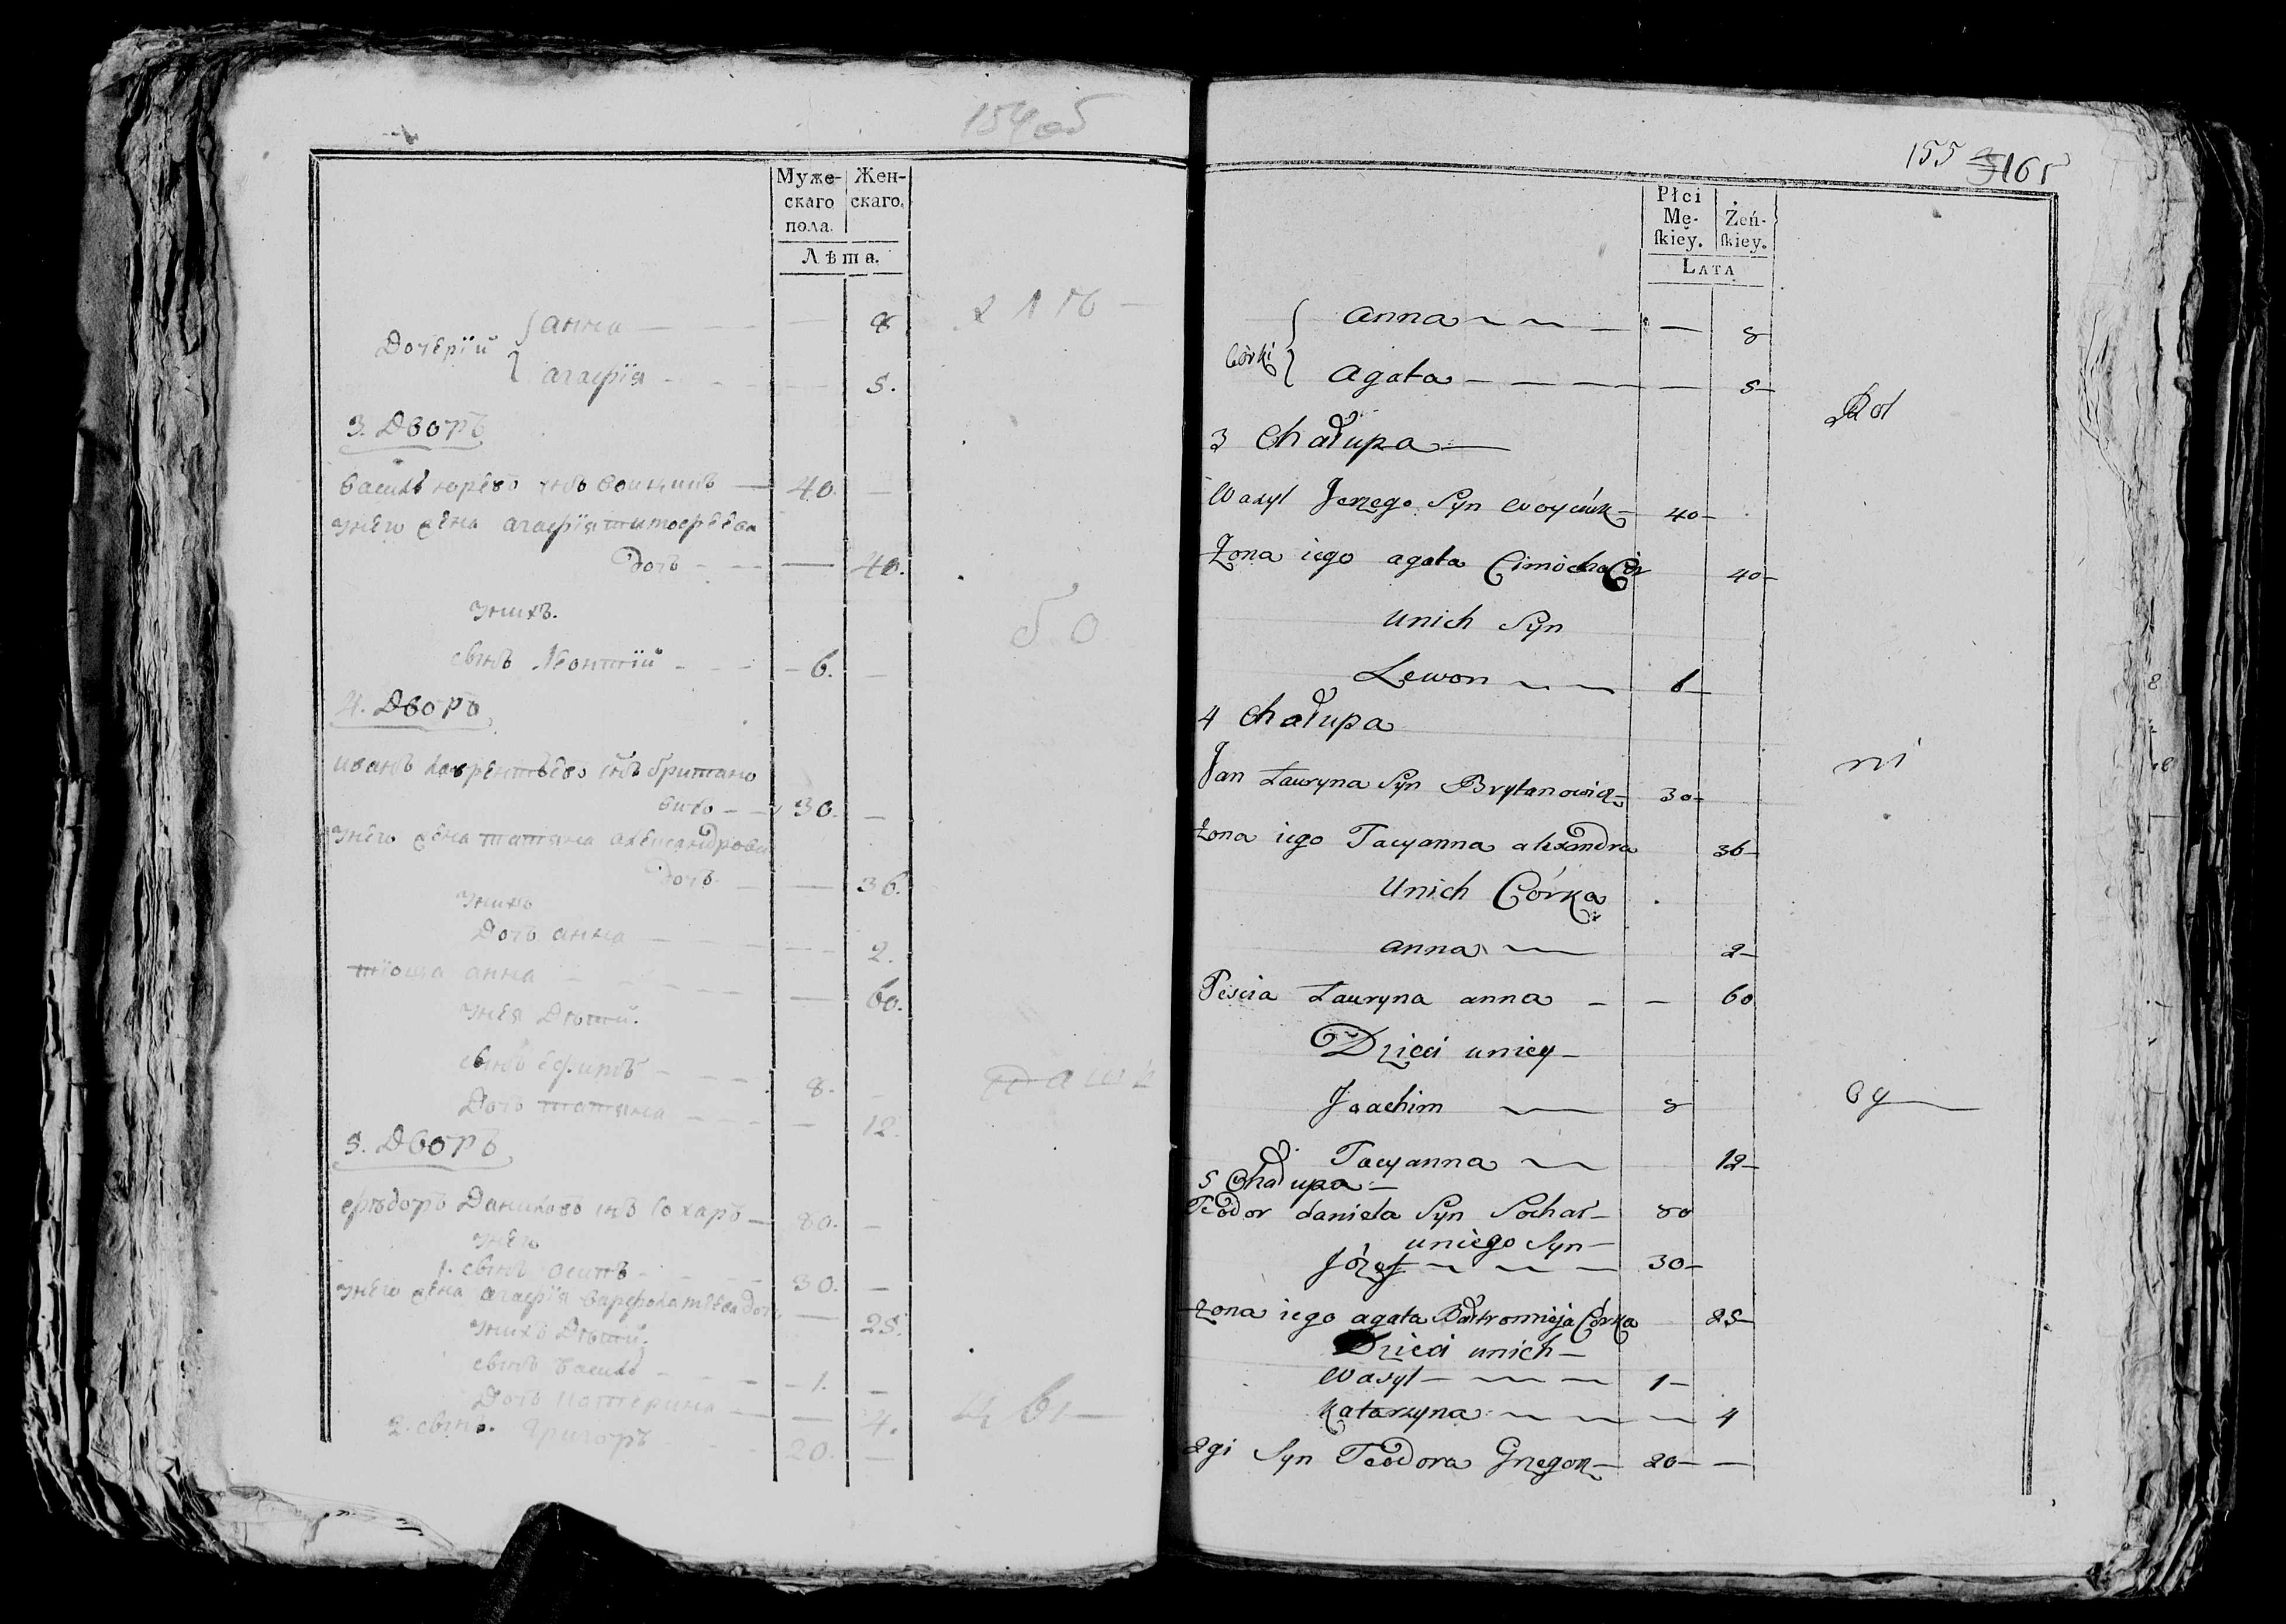 154 об
Муже-
скаго
пола.
Жен-
скаго.
Лѣта.
Дочерїи { анна — — — 8
агафїя — — — 5.
3. Дворъ
Василь юревъ снъ воицикъ — 40. —
унего жена агафїя тимофѣева
дочь — — — 40.
унихъ.
сынъ Леонтїй — — 6. —
4. Дворъ
иванъ лаврентьевъ снъ британо
вичь — 30. —
унего жена татяна александрова
дочь — — 36.
унихъ
дочь анна — — — 2.
тїоща анна — — — 60.
унея Дѣти.
сынъ ефимъ — — 8. —
Дочь татяна — — 12.
5. Дворъ
фѣдоръ Даниловъ снъ Сохаръ — 80. —
унего
1. сынъ осипъ — — 30. —
унего жена агафїя варфоламѣева дочь — 25.
унихъ Дѣти.
сынъ василь — — 1. —
Дочь катерина — — 4.
2. сынъ. Григоръ — — 20. —
155 165
Płci
Mę-
skiey.
Żeń-
skiey.
LATA
Córki { anna — — — 8
agata — — — 5
3 Chałupa —
Wasyl Jerzego Syn Woycik — 40 —
Żona iego agata Cimocha Cór 40 —
unich Syn
Lewon — — 6 —
4 Chałupa
Jan Łauryna Syn Brytanowicz — 30 —
żona iego Tacyanna alexandra 36 —
Unich Córka
anna — 2 —
Teścia Łauryna anna — — 60
Dzieci uniey —
Joachim — 8
Tacyanna — 12 —
5 Chałupa —
Teodor daniela Syn Sochar — 80
uniego Syn —
Józef — — — 30 —
żona iego agata Bałtromieja Córka 25 —
Dzieci unich —
Wasyl — — — 1 —
Katarzyna — — — — 4
2gi Syn Teodora Grzegorz — 20 — —